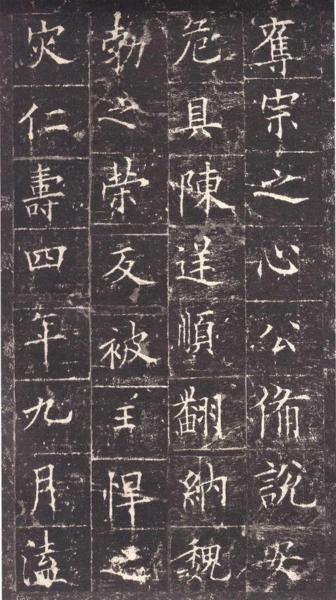 奪宗之心公俻說安
危具陳逆順翻納魏
勃之榮反被王悍之
灾仁壽四年九月溘